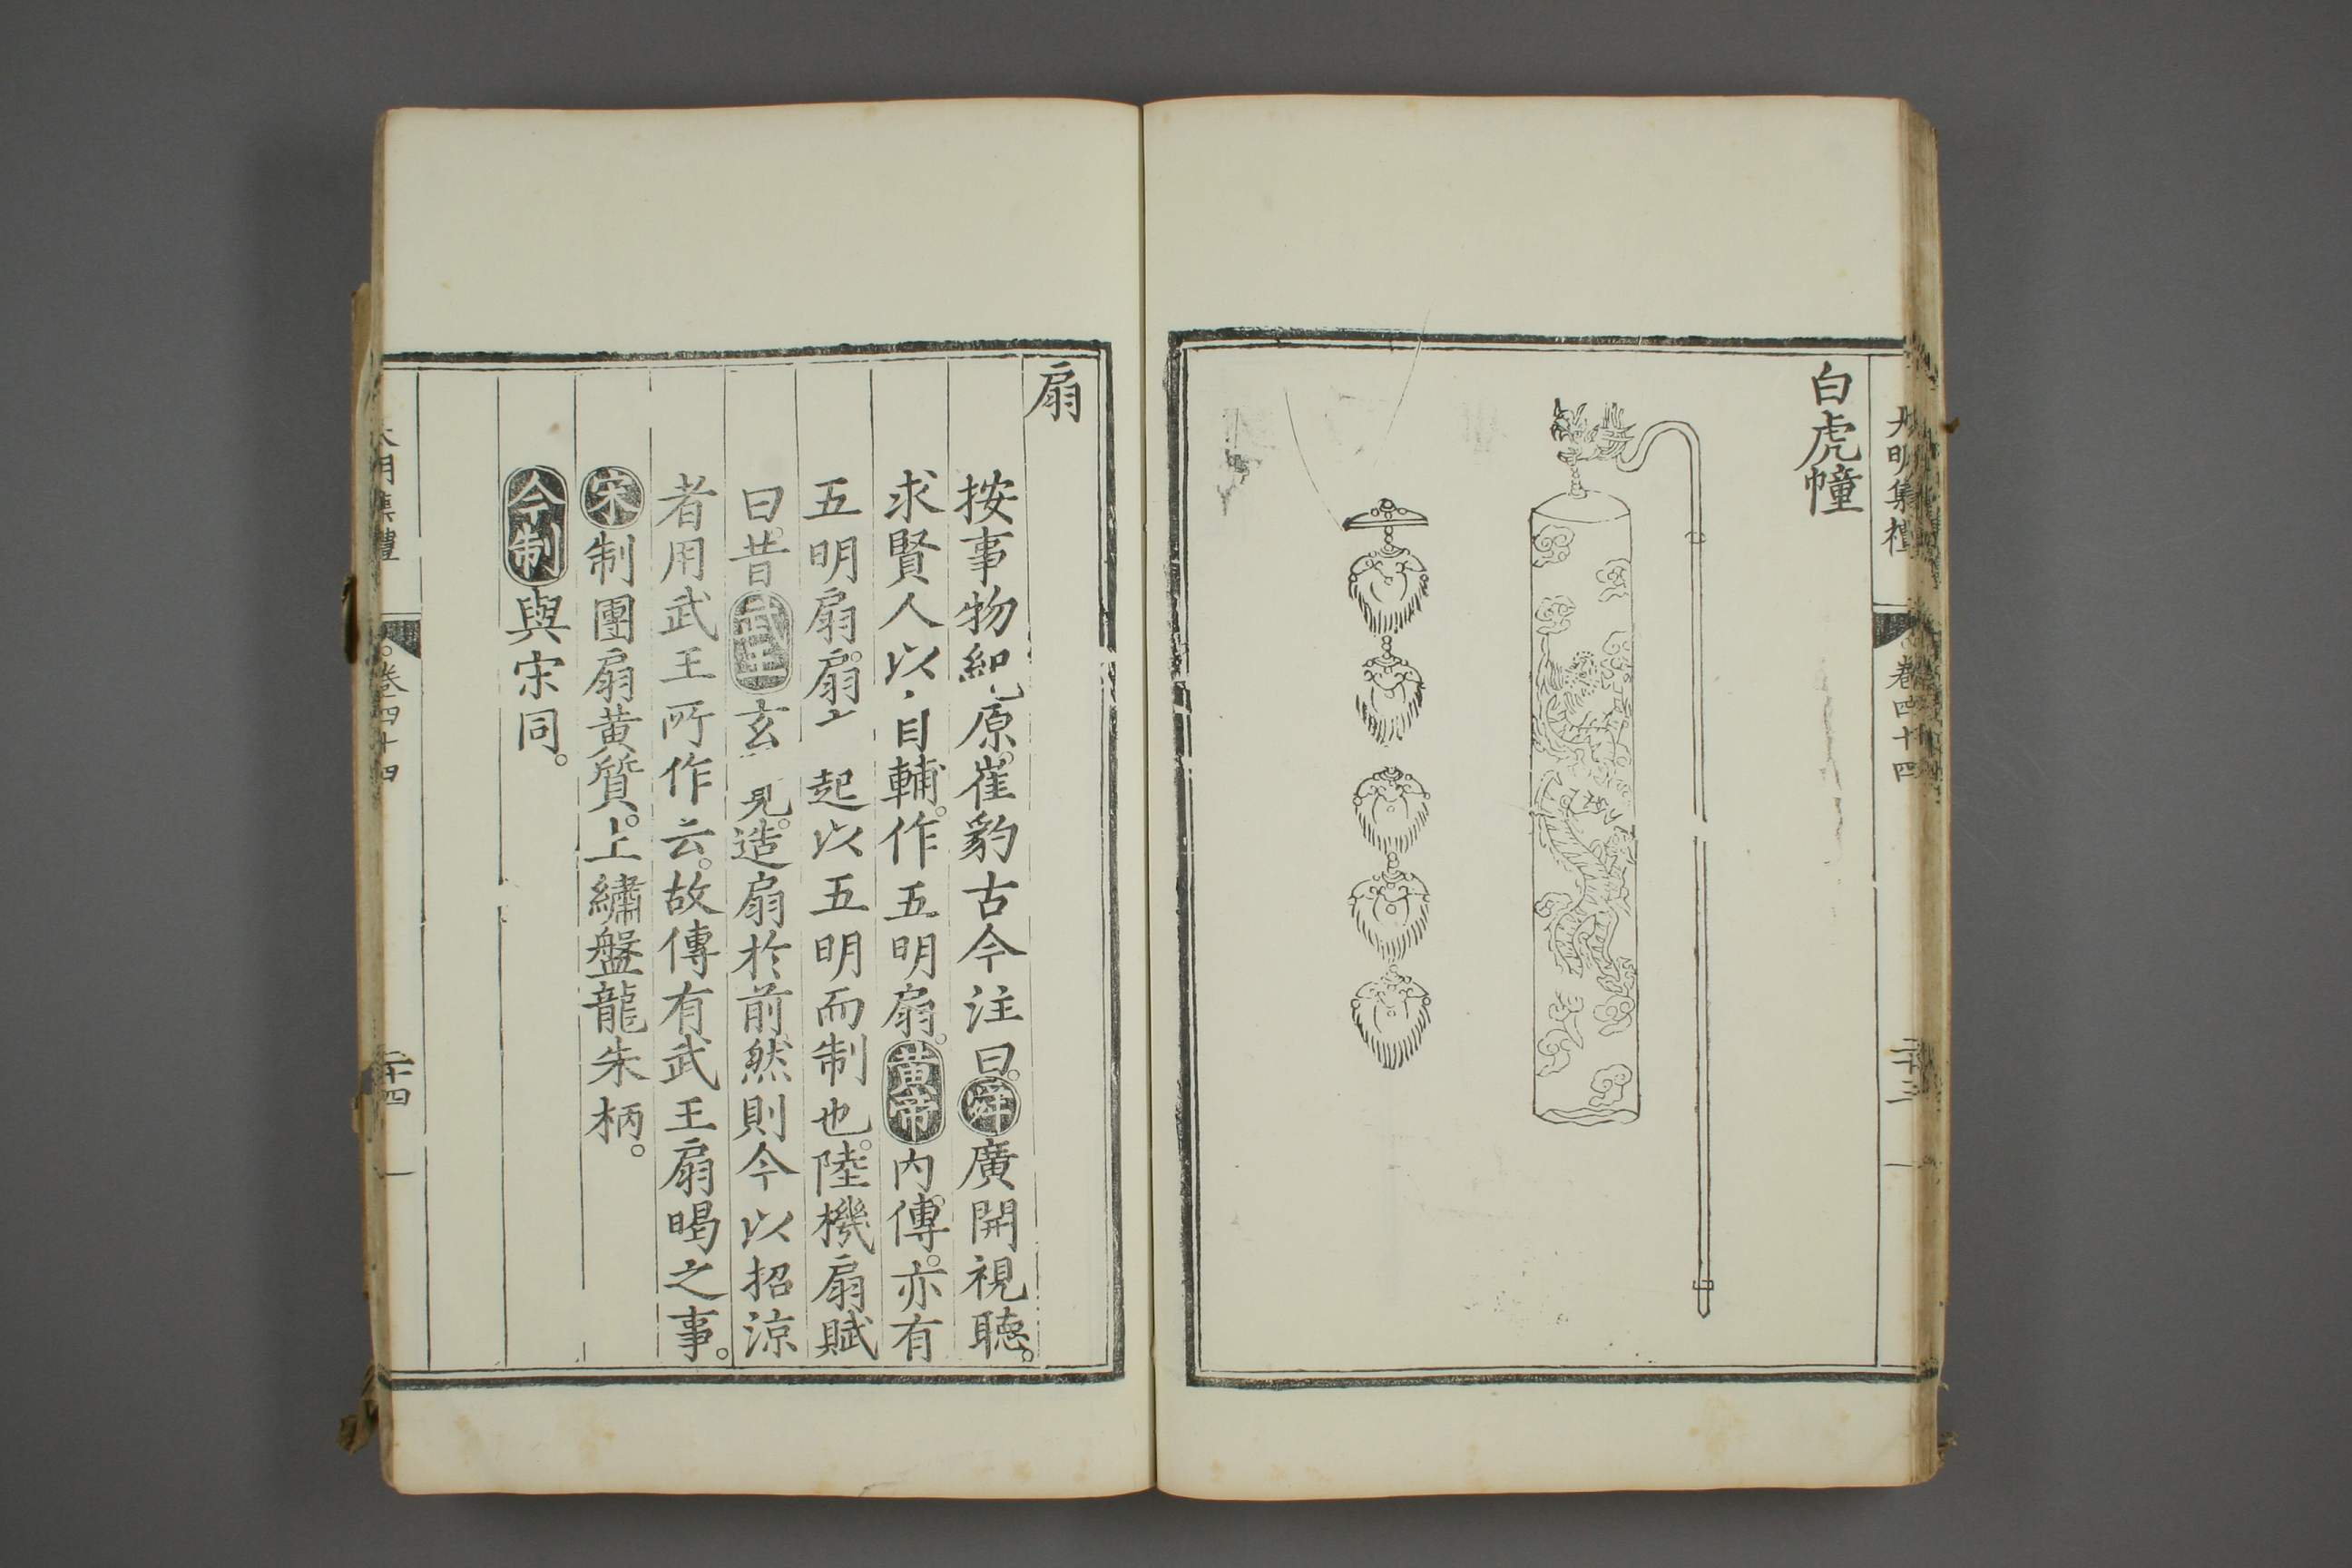 大明集禮
卷四十四
二十三
白虎幢
扇
按事物紀原崔豹古今注曰舜廣開視聽
求賢人以自輔作五明扇黃帝內傳亦有
五明扇扇 起以五明而制也陸機扇賦
曰昔武王玄 見造扇於前然則今以招涼
者用武王所作云故傳有武王扇暍之事
宋制團扇黃質上繡盤龍朱柄
今制與宋同
大明集禮
卷四十四
二十四